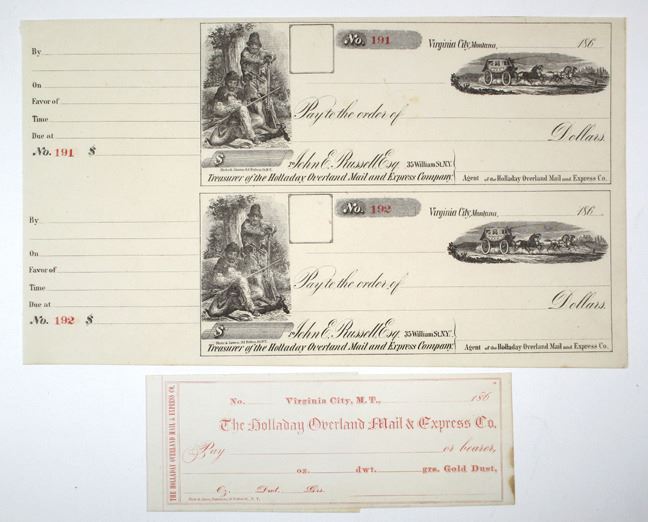 By
On
Favor of
Time
Due at
No. 191 $
No. 191
Virginia City, Montana, 186
Pay to the order of
Dollars.
$
John E. Russell Esq. 35 William St. N.Y.
Treasurer of the Holladay Overland Mail and Express Company.
Agent of the Holladay Overland Mail and Express Co.
By
On
Favor of
Time
Due at
No. 192 $
No. 192
Virginia City, Montana, 186
Pay to the order of
Dollars.
$
John E. Russell Esq. 35 William St. N.Y.
Treasurer of the Holladay Overland Mail and Express Company.
Agent of the Holladay Overland Mail and Express Co.
THE HOLLADAY OVERLAND MAIL & EXPRESS CO.
No. Virginia City, M. T., 186
The Holladay Overland Mail & Express Co.
Pay or bearer,
oz. dwt. grs. Gold Dust,
Oz. Dwt. Grs.